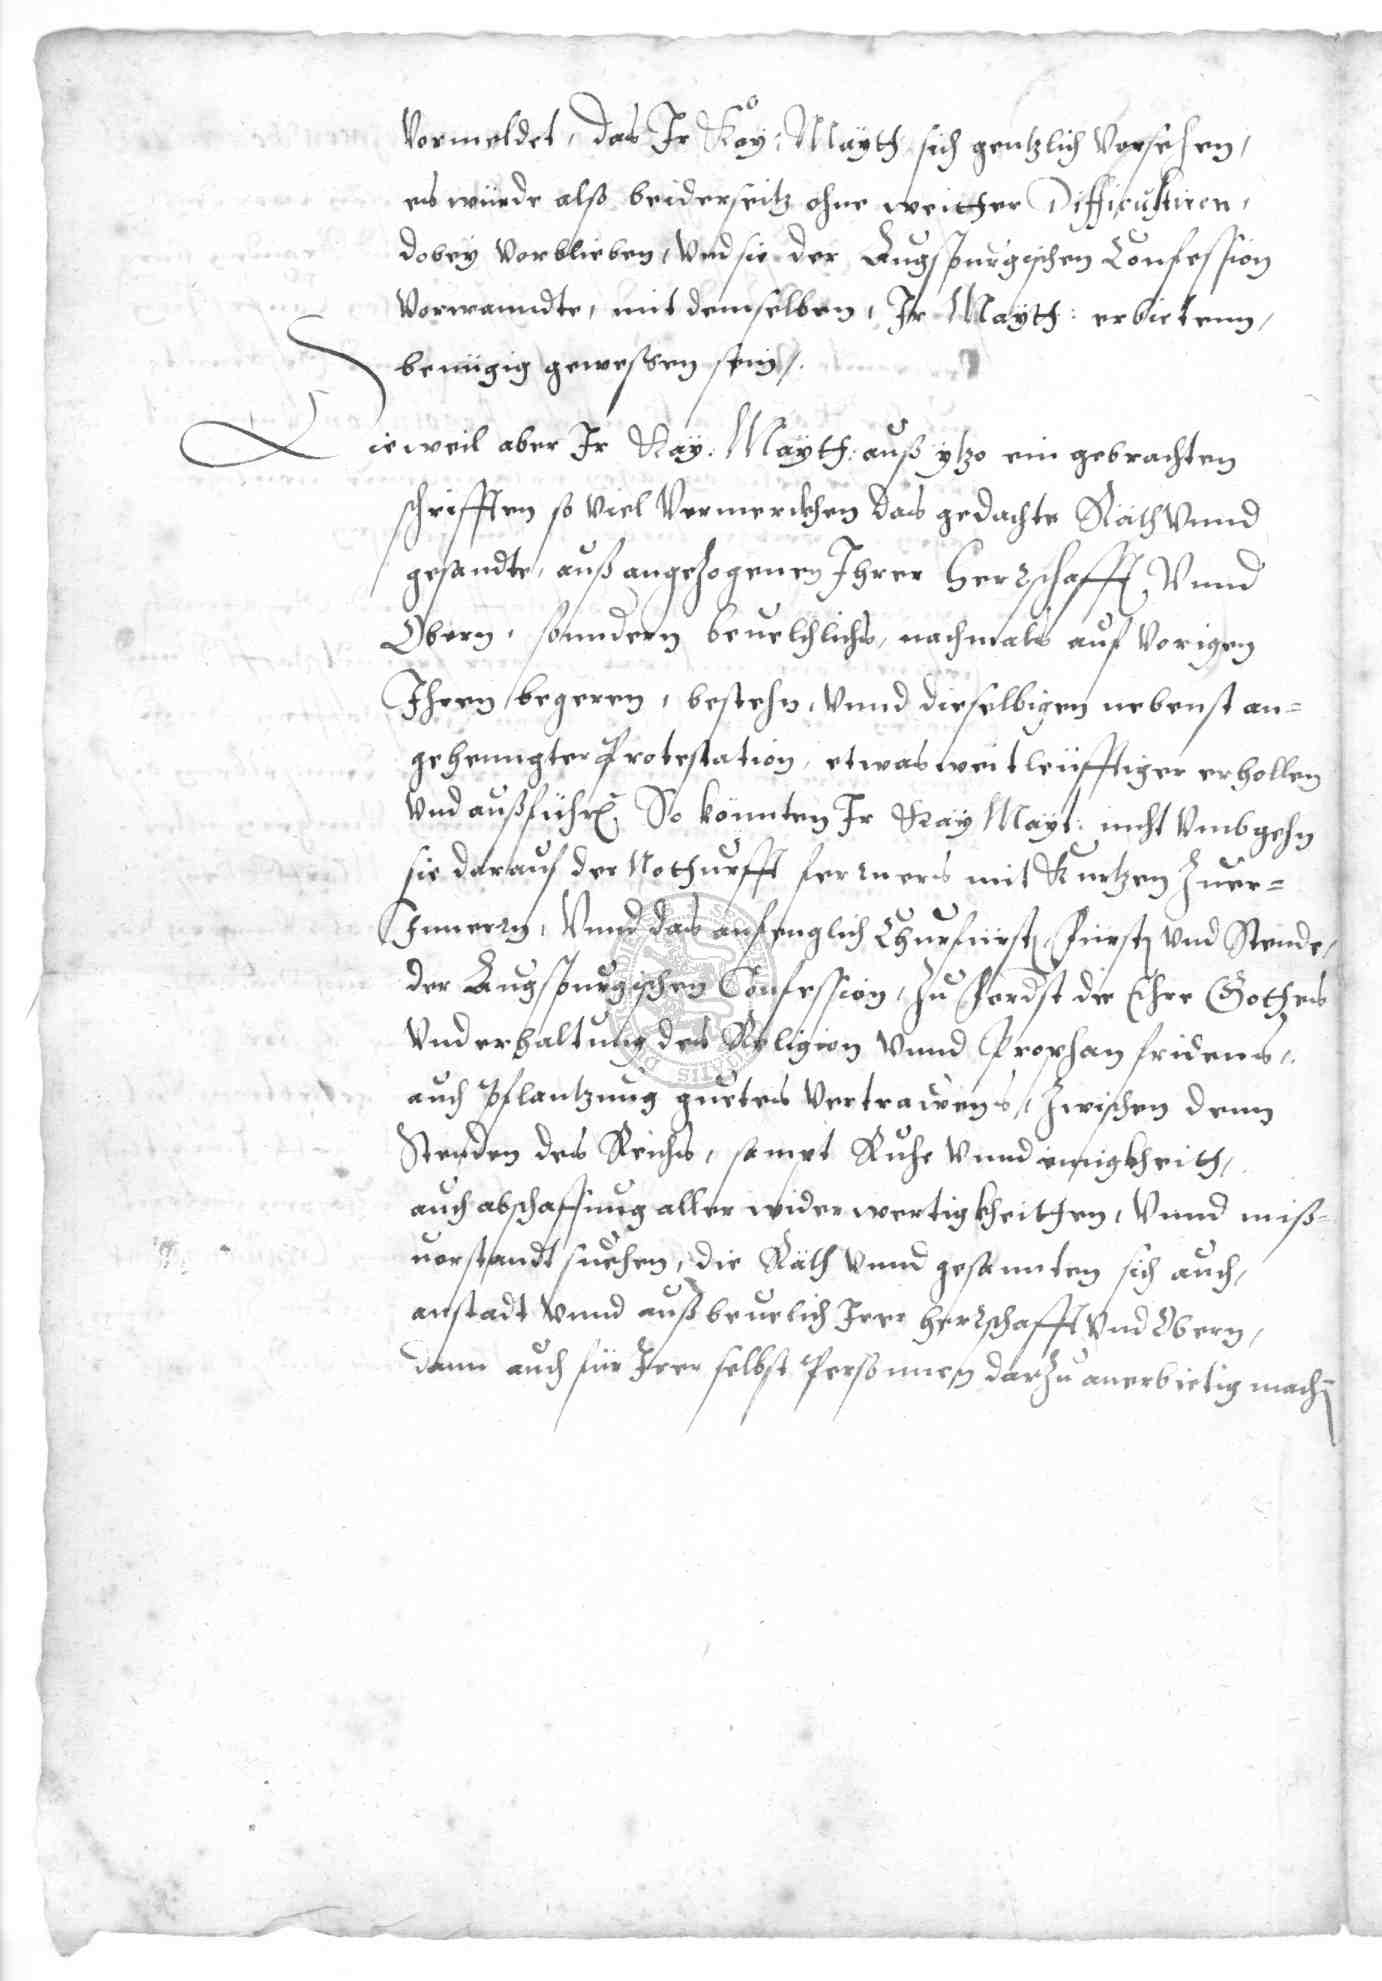 Vormeldet, das Ir Köy: Mayth sich gentzlich Vorsehen,
es würde also beiderseitz ohne weither Difficultiren,
dobey Vorblieben, Vnd sie der Augspurgischen Confession
Vorwanndte, mit demselben, Ir Mayth: erbietenn,
benügig gewessen sein.
Dieweil aber Ir Kay: Mayth: auß ytzo ein gebrachten
schrifften so Viel Vermerckhen das gedachte Räth Vnnd
gesandte, auß angezogenen Ihrer Herrschafft, Vnnd
Obern, sonndern beuelchlichs, nachmals auf Vorigen
Ihren begeren, bestehn, Vnnd dieselbigen nebenst an-
gehenngter Protestation, etwas weitleüfftiger erhollen
Vnd außführen, So könnten Ir Kay Mayt: nicht Vmbgehn
sie darauf der Nothurfft fernners mit Kurtzen Zuer-
Innern, Vnnd das anfenglich Churfürsten Fürsten Vnd Stende,
der Augspurgischen Confession, Zu Fordst die Ehre Gothes
Vnd erhaltung des Religion Vnnd Prophan fridens,
auch Pflantzung guetes Vertrawens, Zwischen denn
Stenden des Reichs, sampt Ruhe Vnnd einigkheith,
auch abschaffung aller widerwertigkheithen, Vnnd miß-
uorstandt suchen, die Räth Vnnd gesannten sich auch,
anstadt Vnnd auß beuelich Irer Herrschafft Vnd Obern,
dann auch für Irer selbst Personnen darzu anerbietig machen